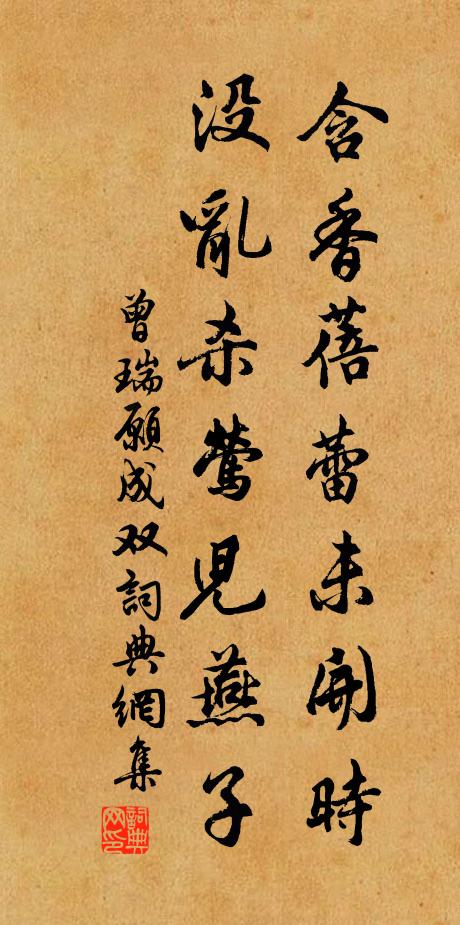 含香蓓蕾未開時
没亂杀鶯児燕子
曾瑞願成双詞典網集
詞典网印